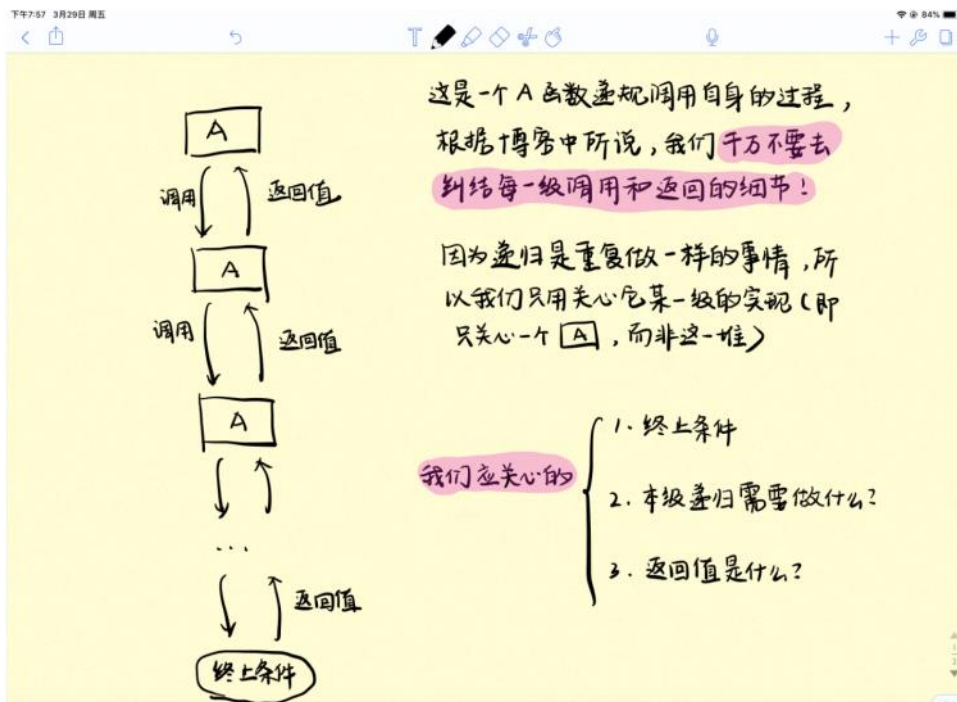 下午7:57 3月29日 周五
84%
A
调用
返回值
A
调用
返回值
A
...
返回值
终止条件
这是一个A函数递规调用自身的过程，
根据博客中所说，我们千万不要去
纠结每一级调用和返回的细节！
因为递归是重复做一样的事情，所
以我们只用关心它某一级的实现（即
只关心一个 A ，而非这一堆）
我们应关心的
1. 终止条件
2. 本级递归需要做什么？
3. 返回值是什么？